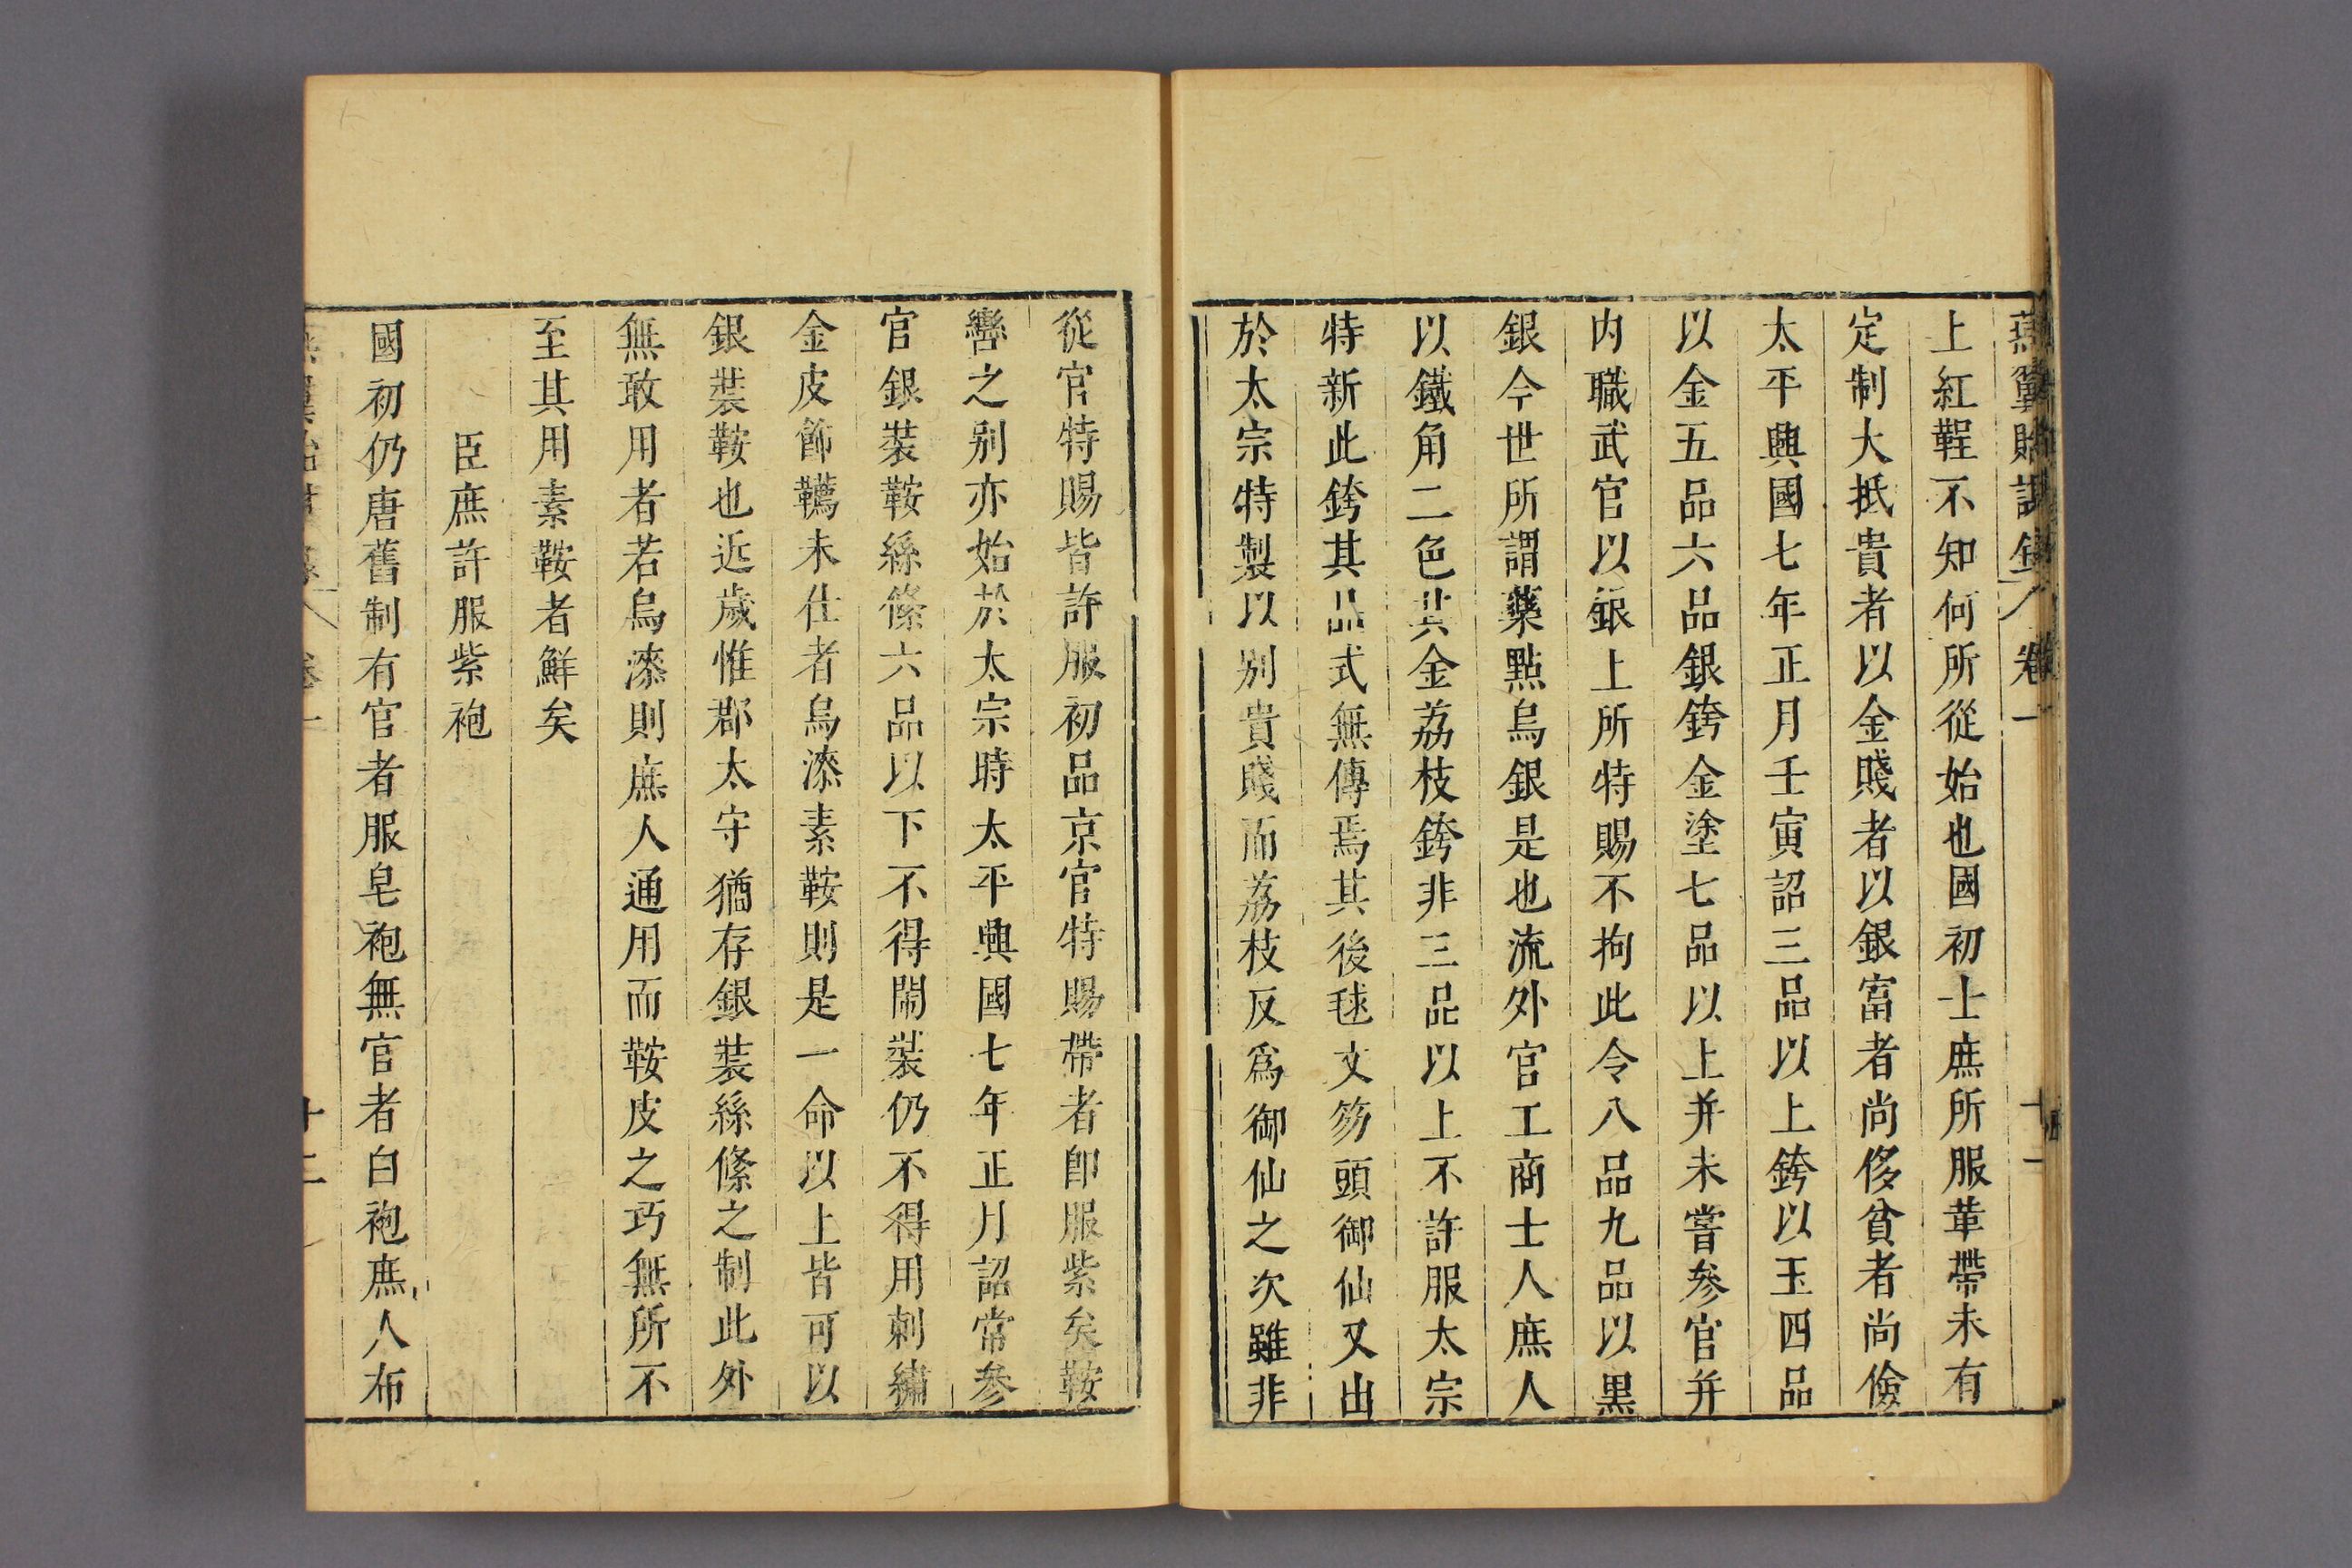 燕翼貽謀錄 卷一 十一
上紅鞓不知何所從始也國初士庶所服革帶未有
定制大抵貴者以金賤者以銀富者尚侈貧者尚儉
太平興國七年正月壬寅詔三品以上銙以玉四品
以金五品六品銀銙金塗七品以上并未嘗參官并
内職武官以銀上所特賜不拘此令八品九品以黑
銀今世所謂藥點烏銀是也流外官工商士人庶人
以鐵角二色其金荔枝銙非三品以上不許服太宗
特新此銙其品式無傳焉其後毬文笏頭御仙又出
於太宗特製以别貴賤而荔枝反爲御仙之次雖非
從官特賜皆許服初品京官特賜帶者卽服紫矣鞍
轡之别亦始於太宗時太平興國七年正月詔常參
官銀裝鞍絲絛六品以下不得鬧裝仍不得用刺繡
金皮飾韉未仕者烏漆素鞍則是一命以上皆可以
銀裝鞍也近歲惟郡太守猶存銀裝絲絛之制此外
無敢用者若烏漆則庶人通用而鞍皮之巧無所不
至其用素鞍者鮮矣
臣庶許服紫袍
國初仍唐舊制有官者服皂袍無官者白袍庶人布
卷一 十二